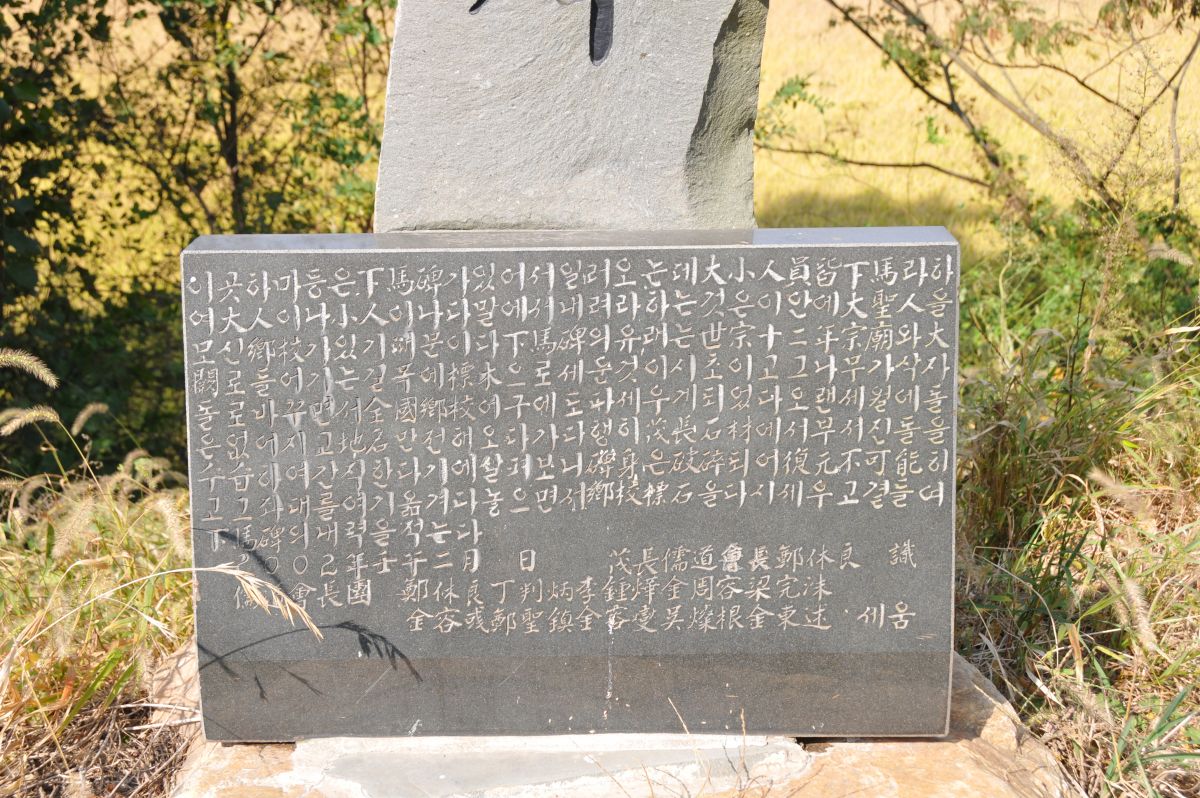 이곳하마등은下馬碑가있어서일러오는데大小人員皆下馬라하
여大人이나小人이나다말에서내려라하는것은이안에大聖人을
모신鄕校가있기때문이다下馬碑의유래는世宗十二年宗廟와大
闕로들어가는길목에標木으로세운것이시초이고그나무가삭자
돌로바꾸면서全國鄕校어구에도다세우게되었다오랜세월에돌
은없어지고地名만전해오다가다행히茂長石材에서부서진돌을
수습하여간직한다기에살펴보니碑身은破碎되어復元不可能하
고그좌대를여기옮겨다놓으면서鄕校標石을다시세우고곁들여
下馬碑의내력을적는다
2002年壬午二月 日 茂長儒道會長鄭休良 識
儒 會長團 鄭休良丁判炳李鍾燁金周容梁完洙
金容彧鄭聖鎮金容燮吳燦根金東述 세움